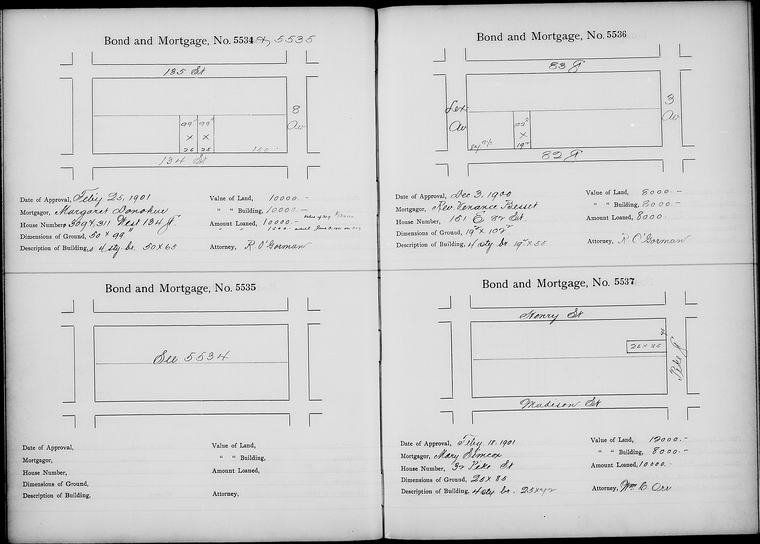 Bond and Mortgage, No. 5534 & 5535
135 St
8
Av
99" 99"
X X
25 25
150
134 St
Date of Approval, Feby 25, 1901
Mortgagor, Margaret Donohue
House Number, 309 & 311 West 134 St
Dimensions of Ground, 50 x 99"
Description of Building, 2 4 sty br. 50 x 65
Value of Land, 10000.-
" " Building, 10000.-
Amount Loaned, 10000.-
Attorney, R O'Gorman
Bond and Mortgage, No. 5535
See 5534
Date of Approval,
Mortgagor,
House Number,
Dimensions of Ground,
Description of Building,
Value of Land,
" " Building,
Amount Loaned,
Attorney,
Bond and Mortgage, No. 5536
83 St
Lex
Av
3
Av
102²
X
19²
82 St
Date of Approval, Dec 3, 1900
Mortgagor, Rev. Venance Besset
House Number, 151 E 82 St.
Dimensions of Ground, 19² x 102²
Description of Building, 4 sty br. 19² x 55
Value of Land, 8000.-
" " Building, 8000.-
Amount Loaned, 8000.
Attorney, R O'Gorman
Bond and Mortgage, No. 5537
Henry St
25 x 85
Pike St
Madison St
Date of Approval, Feby. 18. 1901
Mortgagor, Mary Simeon
House Number, 32 Pike St
Dimensions of Ground, 25 x 85
Description of Building, 4 sty br. 25 x 42
Value of Land, 12000.-
" " Building, 8000.-
Amount Loaned, 10000.-
Attorney, Wm C. Orr